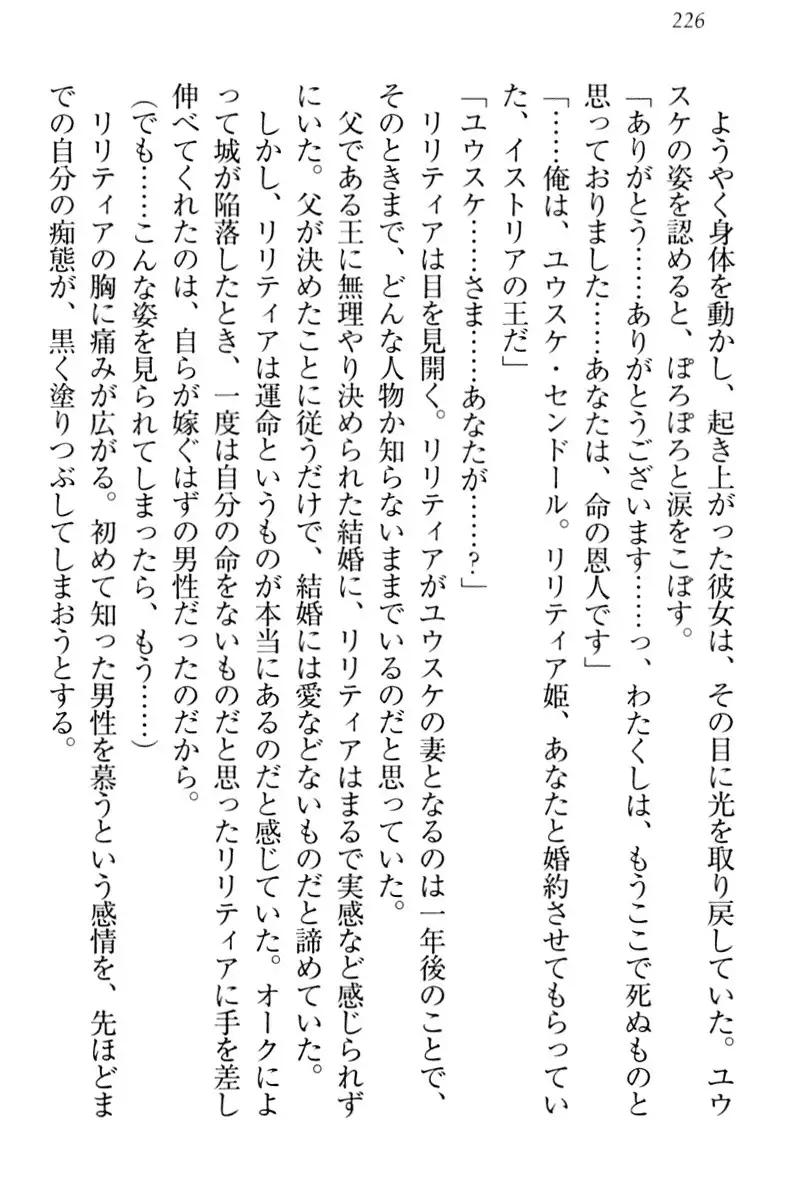 226
ようやく身体を動かし、起き上がった彼女は、その目に光を取り戻していた。ユウ
スケの姿を認めると、ぽろぽろと涙をこぼす。
「ありがとう……ありがとうございます……っ、わたくしは、もうここで死ぬものと
思っておりました……あなたは、命の恩人です」
「……俺は、ユウスケ・センドール。リリティア姫、あなたと婚約させてもらってい
た、イストリアの王だ」
「ユウスケ……さま……あなたが……？」
リリティアは目を見開く。リリティアがユウスケの妻となるのは一年後のことで、
そのときまで、どんな人物か知らないままでいるのだと思っていた。
父である王に無理やり決められた結婚に、リリティアはまるで実感など感じられず
にいた。父が決めたことに従うだけで、結婚には愛などないものだと諦めていた。
しかし、リリティアは運命というものが本当にあるのだと感じていた。オークによ
って城が陥落したとき、一度は自分の命をないものだと思ったリリティアに手を差し
伸べてくれたのは、自らが嫁ぐはずの男性だったのだから。
（でも……こんな姿を見られてしまったら、もう……）
リリティアの胸に痛みが広がる。初めて知った男性を慕うという感情を、先ほどま
での自分の痴態が、黒く塗りつぶしてしまおうとする。